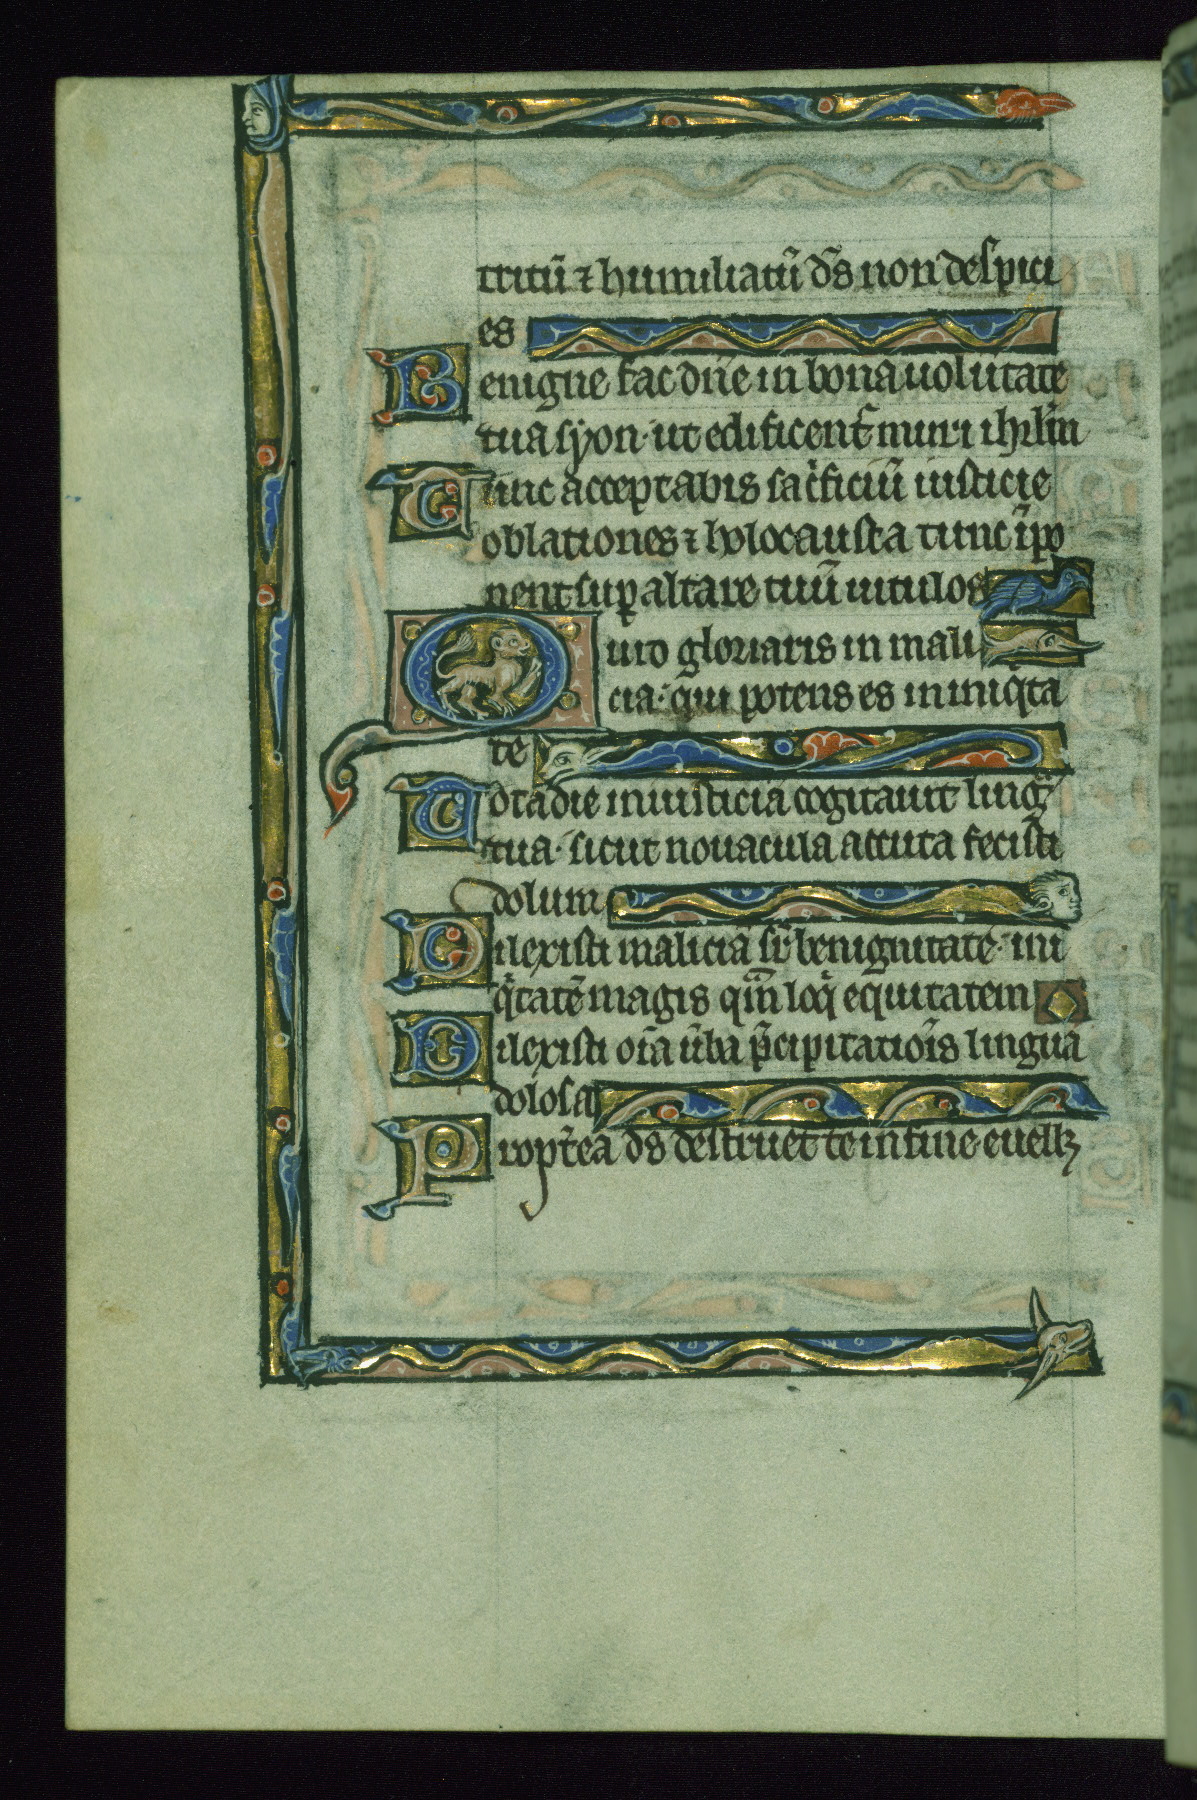 tritū ⁊ humiliatū d̄s non despici
es
Benigne fac dn̄e in bona uolūtate
tua syon· ut edificent᷑ muri ihrl̄m
Tunc acceptabis sac̍ficiū iusticie
oblationes ⁊ holocausta tunc īpo
nent sup̲ altare tuū uitulos
Quid gloriaris in mali
cia· qui potens es in iniq̍ta
te
Tota die iniusticiā cogitauit lingᷓ
tua· sicut nouacula accuta fecisti
dolum
Dilexisti maliciā sr̄ benignitatē· ini
q̍tatē magis qm̄ loq̍ equitatem
Dilexisti oīa ūba p̄cipitatiōīs linguā
dolosa
Propt̄ea ds̄ destruet te in fine euellꝫ